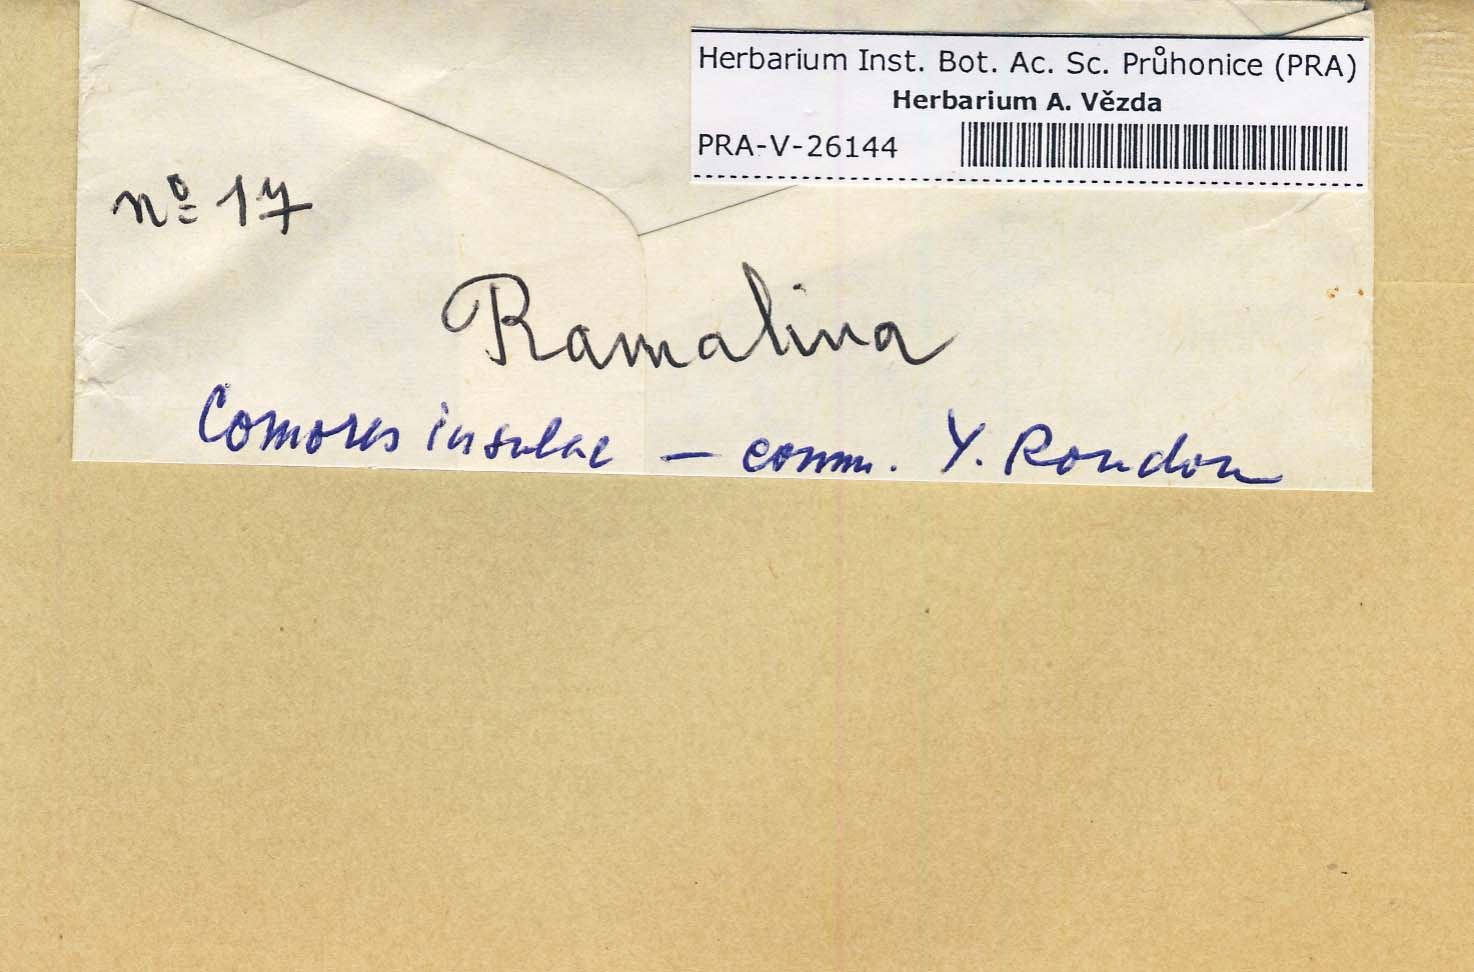 Herbarium Inst. Bot. Ac. Sc. Průhonice (PRA)
Herbarium A. Vězda
PRA-V-26144
nº 17
Ramalina
Comores insulae — comm. Y. Rondon